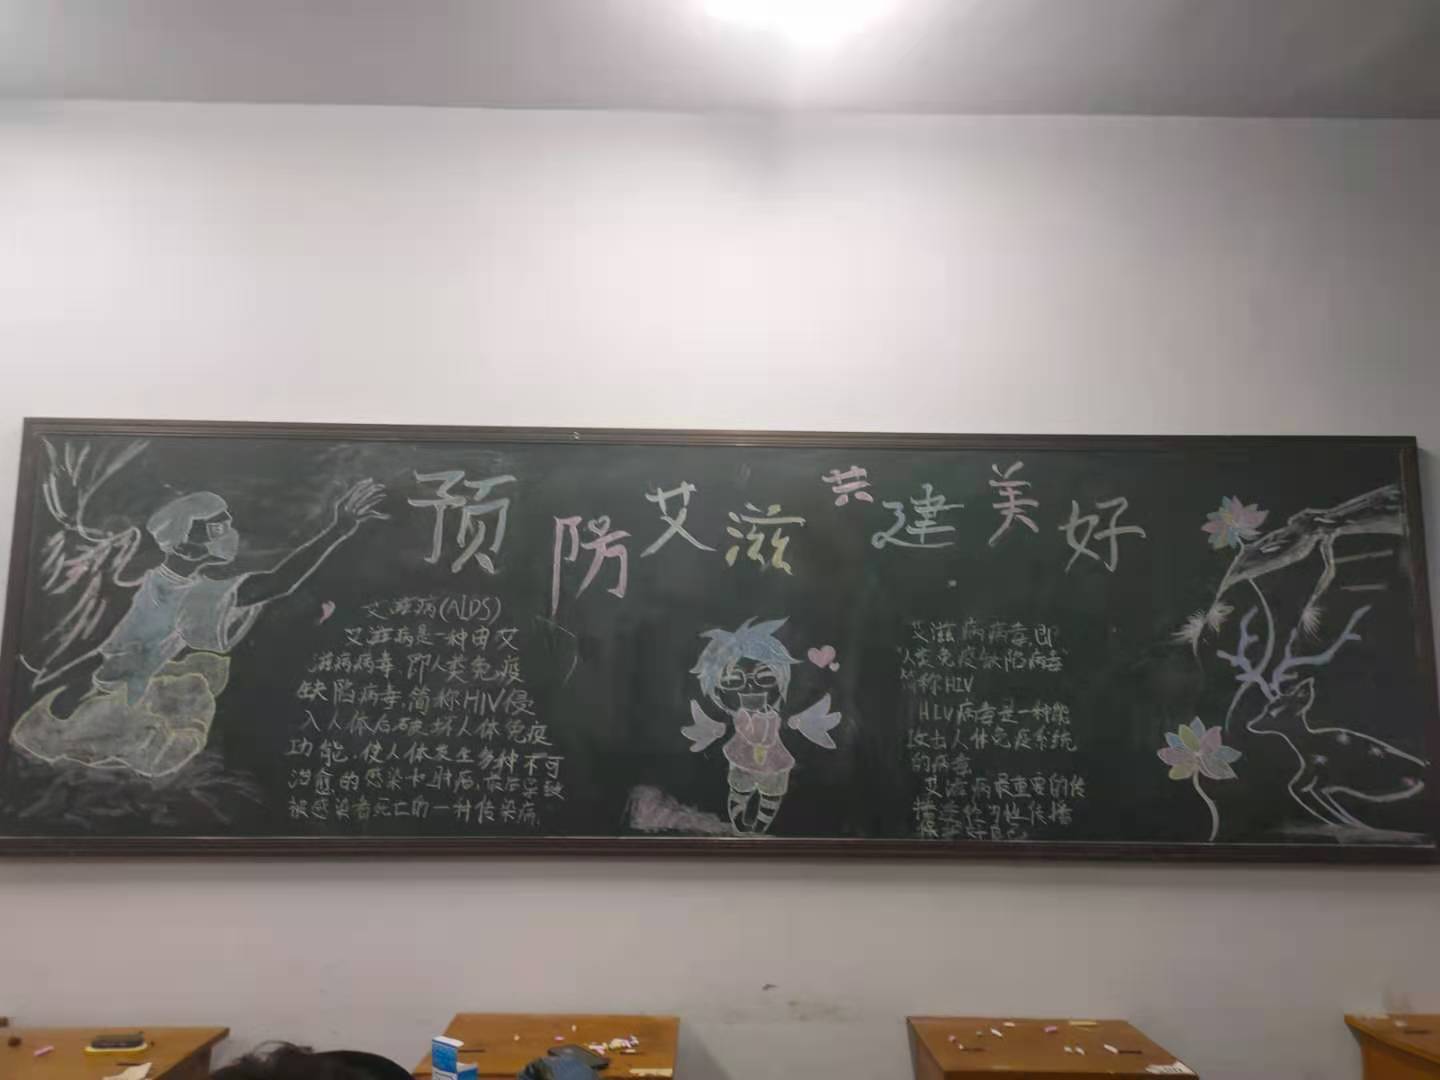 预防艾滋共建美好
艾滋病(AIDS)
艾滋病是一种由艾
滋病病毒,即人类免疫
缺陷病毒,简称HIV侵
入人体后破坏人体免疫
功能,使人体发生多种不可
治愈的感染和肿瘤,最后导致
被感染者死亡的一种传染病.
艾滋病病毒,即
"人类免疫缺陷病毒"
简称HIV
HLV病毒是一种能
攻击人体免疫系统
的病毒
艾滋病最重要的传
播途径为性传播